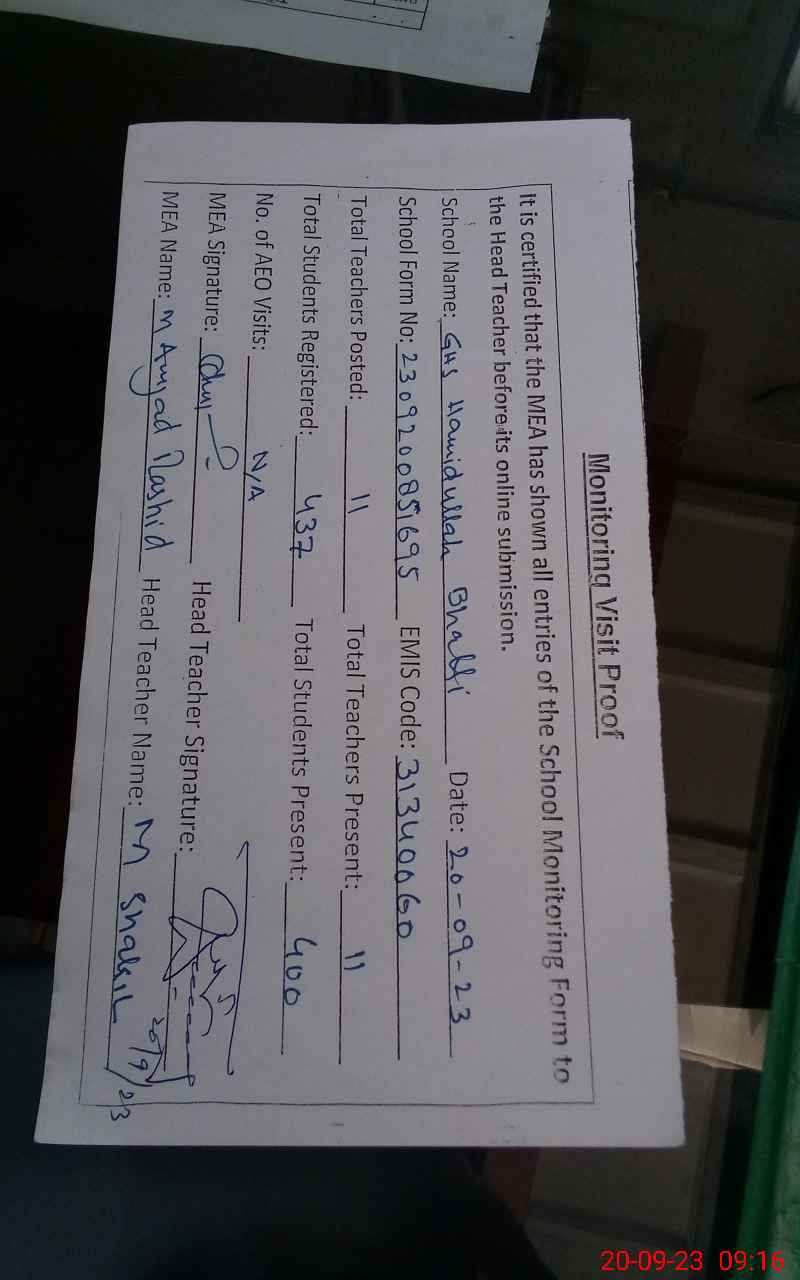 Monitoring Visit Proof
It is certified that the MEA has shown all entries of the School Monitoring Form to
the Head Teacher before its online submission.
School Name: GHS Hamidullah Bhatti Date: 20-09-23
School Form No: 2309200851695 EMIS Code: 31340060
Total Teachers Posted: 11 Total Teachers Present: 11
Total Students Registered: 437 Total Students Present: 400
No. of AEO Visits: N/A
MEA Signature: Head Teacher Signature:
MEA Name: M Amjad Rashid Head Teacher Name: M Shakil 20/9/23
20-09-23 09:16